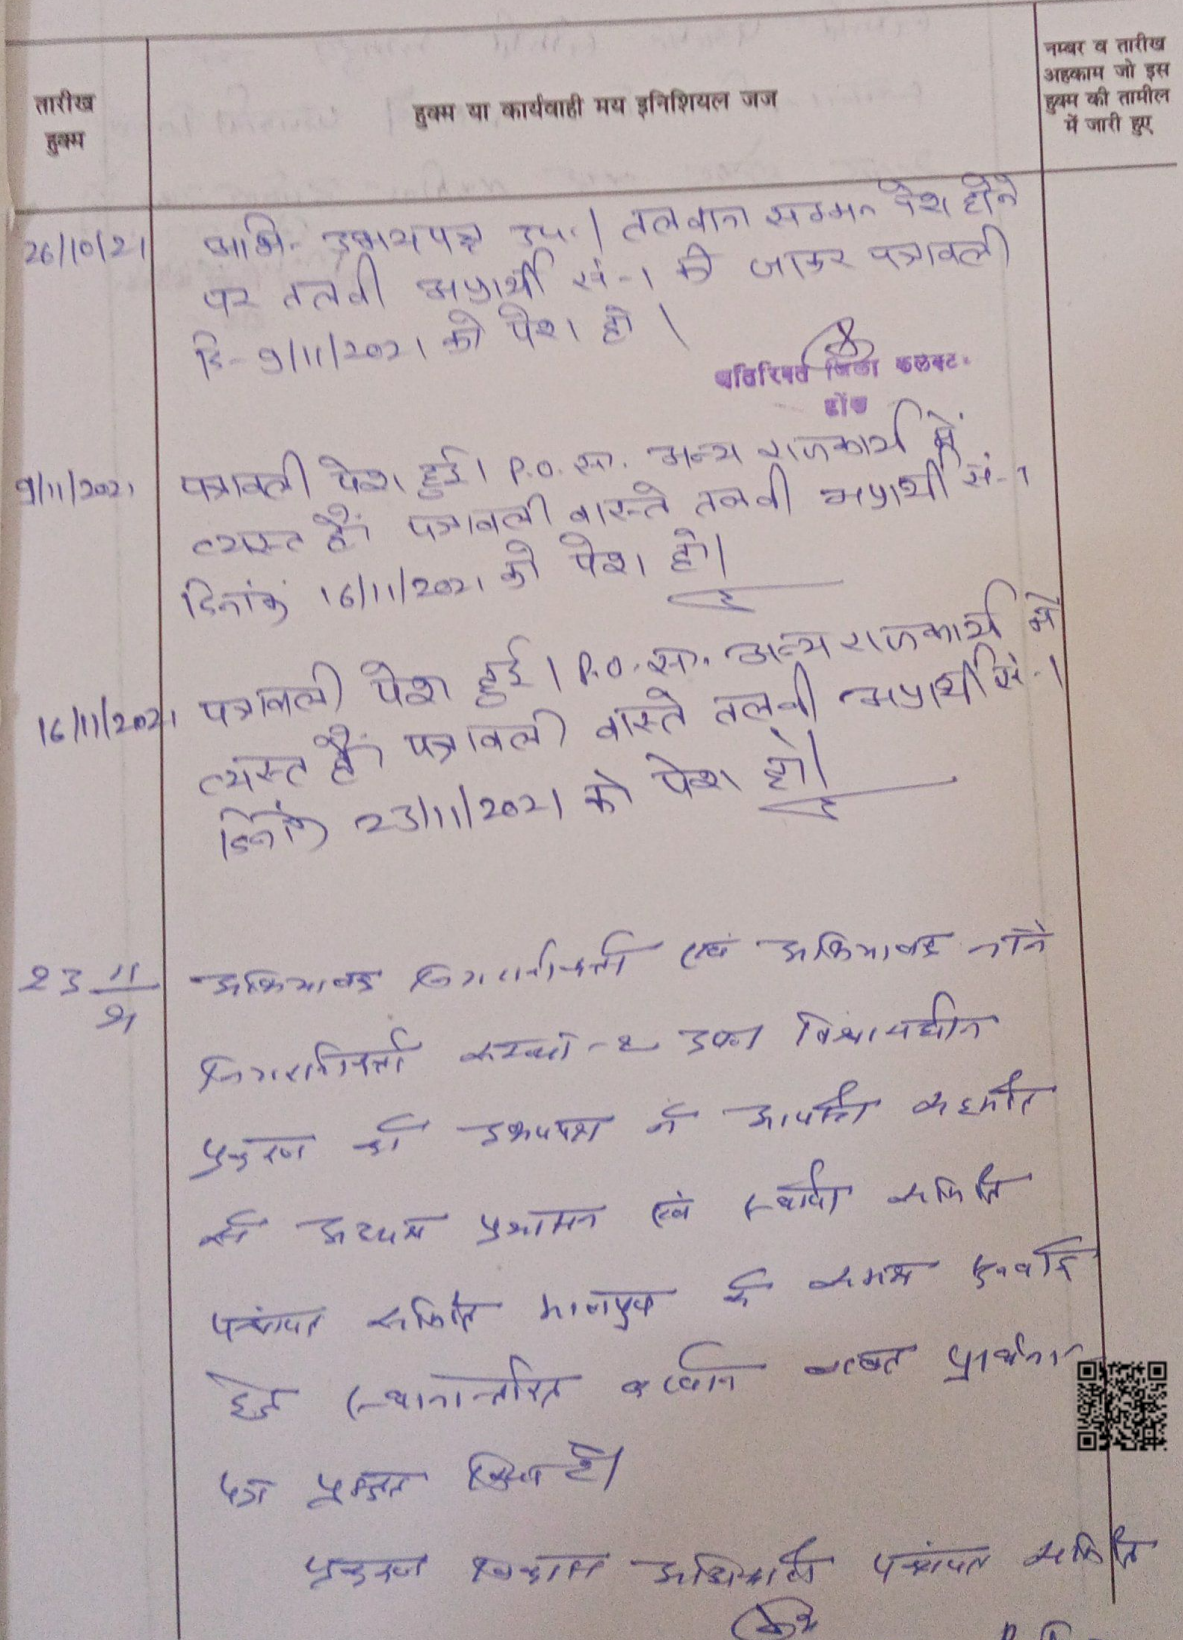 तारीख
हुक्म
हुक्म या कार्यवाही मय इनिशियल जज
नम्बर व तारीख
अहकाम जो इस
हुक्म की तामील
में जारी हुए
26/10/21
अभि. उभयपक्ष उप.। तलवाना सम्मन पेश होने
पर तलवी अप्रार्थी सं-1 की जाकर पत्रावली
दि-9/11/2021 को पेश हो।
अतिरिक्त जिला कलक्टर
टोंक
9/11/2021
पत्रावली पेश हुई। P.O. सा. अन्य राजकार्य में
व्यस्त हैं। पत्रावली वास्ते तलवी अप्रार्थी सं-1
दिनांक 16/11/2021 को पेश हो।
16/11/2021
पत्रावली पेश हुई। P.O. सा. अन्य राजकार्य में
व्यस्त हैं। पत्रावली वास्ते तलवी अप्रार्थी सं-1
दिनांक 23/11/2021 को पेश हो।
23 11/21
अभिभाषक निगरानीकर्ता एवं अभिभाषक गैर
निगरानीकर्ता संख्या-2 उक्त विचाराधीन
प्रकरण को उभयपक्ष ने आपसी सहमति
से अध्यक्ष प्रशासन एवं स्थापना समिति
पंचायत समिति मालपुरा के समक्ष सुनवाई
हेतु स्थानान्तरित बाबत प्रार्थना
पत्र प्रस्तुत किया है।
प्रकरण विकास अधिकारी पंचायत समिति